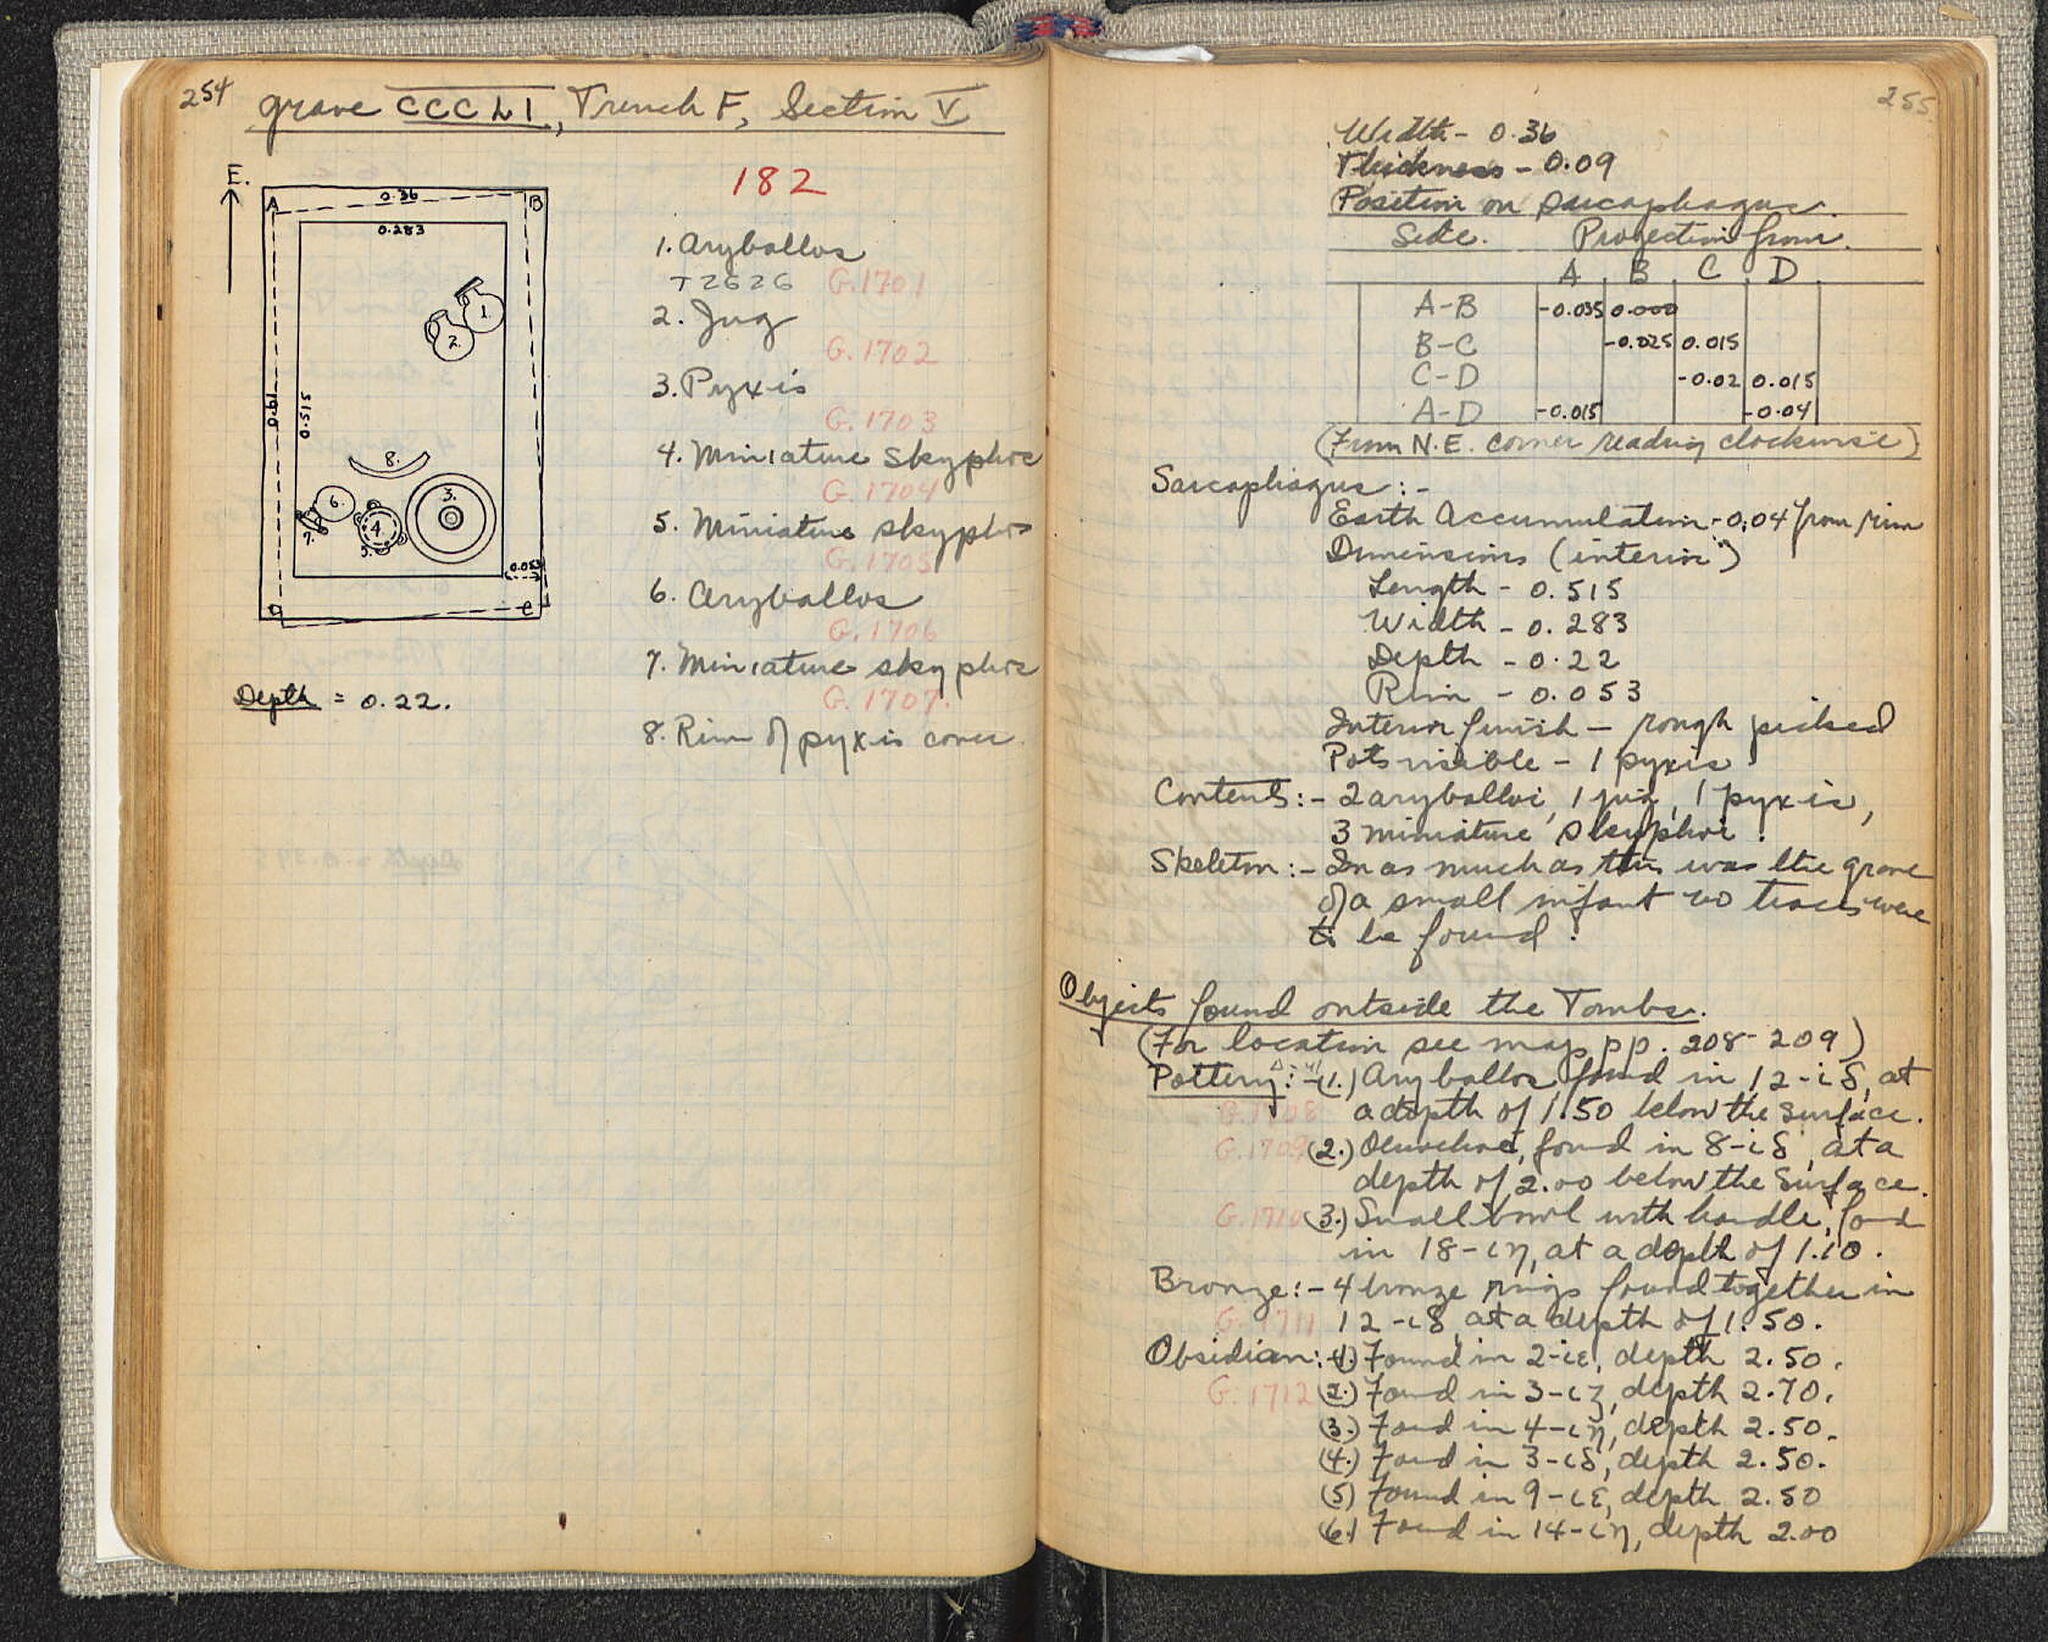 254
Grave CCCLI, Trench F, Section V
E.
182
A
0.36
B
0.283
0.61
0.515
1.
2.
8.
6.
3.
4
7.
5.
0.053
D
C
Depth = 0.22.
1. Aryballos
T2626 G.1701
2. Jug
G.1702
3. Pyxis
G.1703
4. Miniature skyphos
G.1704
5. Miniature skyphos
G.1705
6. Aryballos
G.1706
7. Miniature skyphos
G.1707.
8. Rim of pyxis cover
255
Width - 0.36
Thickness - 0.09
Position on sarcophagus.
Side. Projection from.
A B C D
A-B -0.035 0.000
B-C -0.025 0.015
C-D -0.02 0.015
A-D -0.015 -0.04
(From N.E. corner reading clockwise)
Sarcophagus:-
Earth Accumulation - 0.04 from rim
Dimensions (interior)
Length - 0.515
Width - 0.283
Depth - 0.22
Rim - 0.053
Interior finish - rough picked
Pots visible - 1 pyxis
Contents:- 2 aryballoi, 1 jug, 1 pyxis,
3 miniature skyphoi.
Skeleton:- In as much as this was the grave
of a small infant no traces were
to be found.
Objects found outside the Tombs.
(For location see map pp. 208-209)
Pottery:- (1.) Aryballos found in 12-ιδ, at
G.1708 a depth of 1.50 below the surface.
G.1709 (2.) Oinochoe, found in 8-ιδ, at a
depth of 2.00 below the surface.
G.1710 (3.) Small bowl with handle, found
in 18-ιη, at a depth of 1.10.
Bronze:- 4 bronze rings found together in
G.1711 12-ιδ, at a depth of 1.50.
Obsidian:- (1.) Found in 2-ιε, depth 2.50.
G.1712 (2.) Found in 3-ιζ, depth 2.70.
(3.) Found in 4-ιη, depth 2.50.
(4.) Found in 3-ιδ, depth 2.50.
(5) Found in 9-ιε, depth 2.50
(6.) Found in 14-ιη, depth 2.00